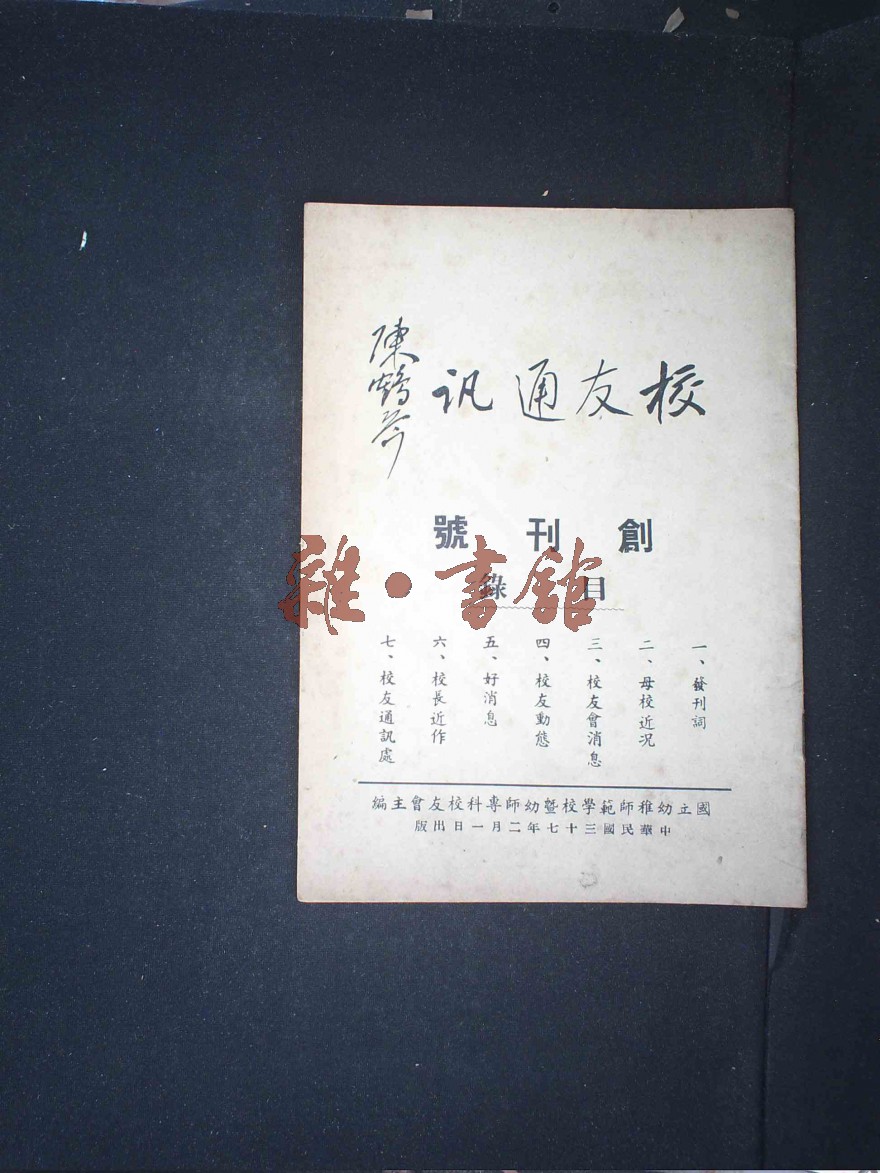 校友通訊
陳鶴琴
創刊號
目錄
雜·書館
一、發刊詞
二、母校近况
三、校友會消息
四、校友動態
五、好消息
六、校長近作
七、校友通訊處
國立幼稚師範學校暨幼師專科校友會主編
中華民國三十七年二月一日出版